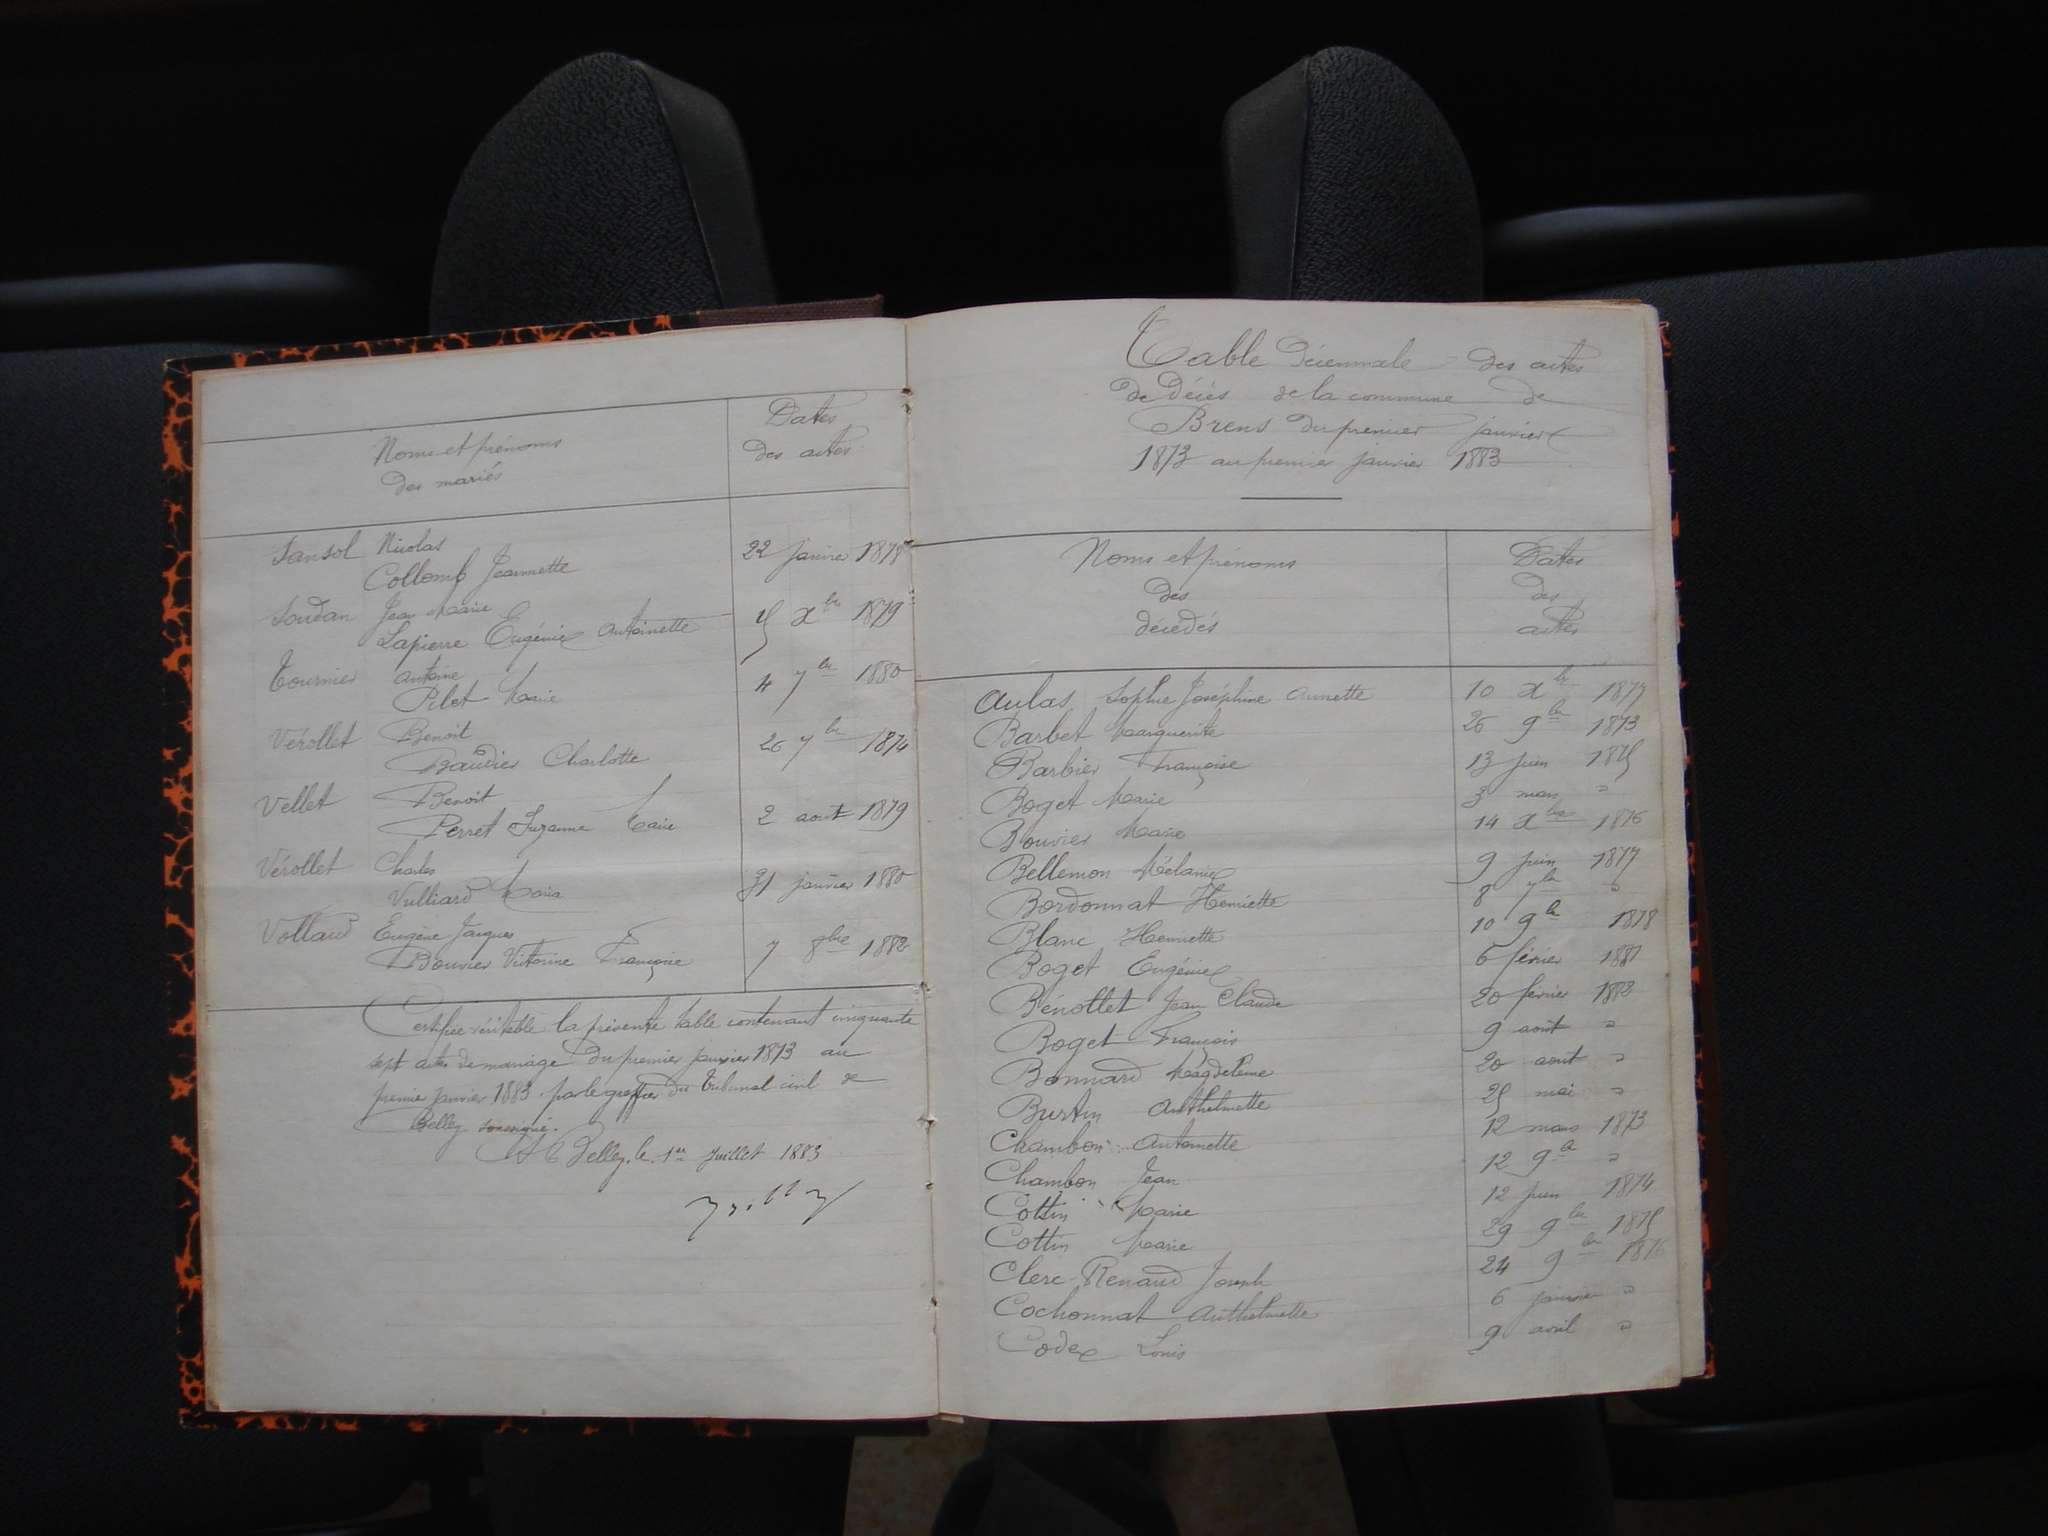 Noms et prénoms
des mariés
Dates
des actes
Sansol Nicolas
Collomb Jeannette 22 janvier 1878
Soudan Jean Marie
Lapierre Eugénie Antoinette 15 Xbre 1879
Tournier Antoine
Pilet Marie 4 7bre 1880
Vérollet Benoit
Baudier Charlotte 26 7bre 1874
Vellet Benoit
Perret Suzanne Marie 2 août 1879
Vérollet Charles
Vulliard Maria 31 janvier 1880
Vollaud Eugène Jacques
Bouvier Victorine Françoise 7 8bre 1882
Certifiée véritable la présente table contenant cinquante
sept actes de mariage du premier janvier 1873 au
premier janvier 1883 par le greffier du Tribunal civil de
Belley soussigné.
A Belley, le 1er Juillet 1883
Table décennale des actes
de décès de la commune de
Brens du premier janvier
1873 au premier janvier 1883
Noms et prénoms
des
décédés
Dates
des
actes
Aulas Sophie Joséphine Annette 10 Xbre 1877
Barbet Marguerite 26 9bre 1873
Barbier Françoise 13 juin 1875
Boget Marie 3 mars "
Bouvier Marie 14 Xbre 1876
Bellemon Mélanie 9 juin 1877
Bordonnat Henriette 8 7bre "
Blanc Henriette 10 9bre 1878
Boget Eugénie 6 février 1881
Bénollet Jean Claude 20 février 1882
Boget François 9 août "
Bonnard Magdeleine 20 août "
Burtin Anthelmette 25 mai "
Chambon Antoinette 12 mars 1873
Chambon Jean 12 9bre "
Cottin Marie 12 juin 1874
Cottin Marie 29 9bre 1875
Clerc-Renaud Joseph 24 9bre 1876
Cochonnat Anthelmette 6 janvier "
Codex Louis 9 avril "